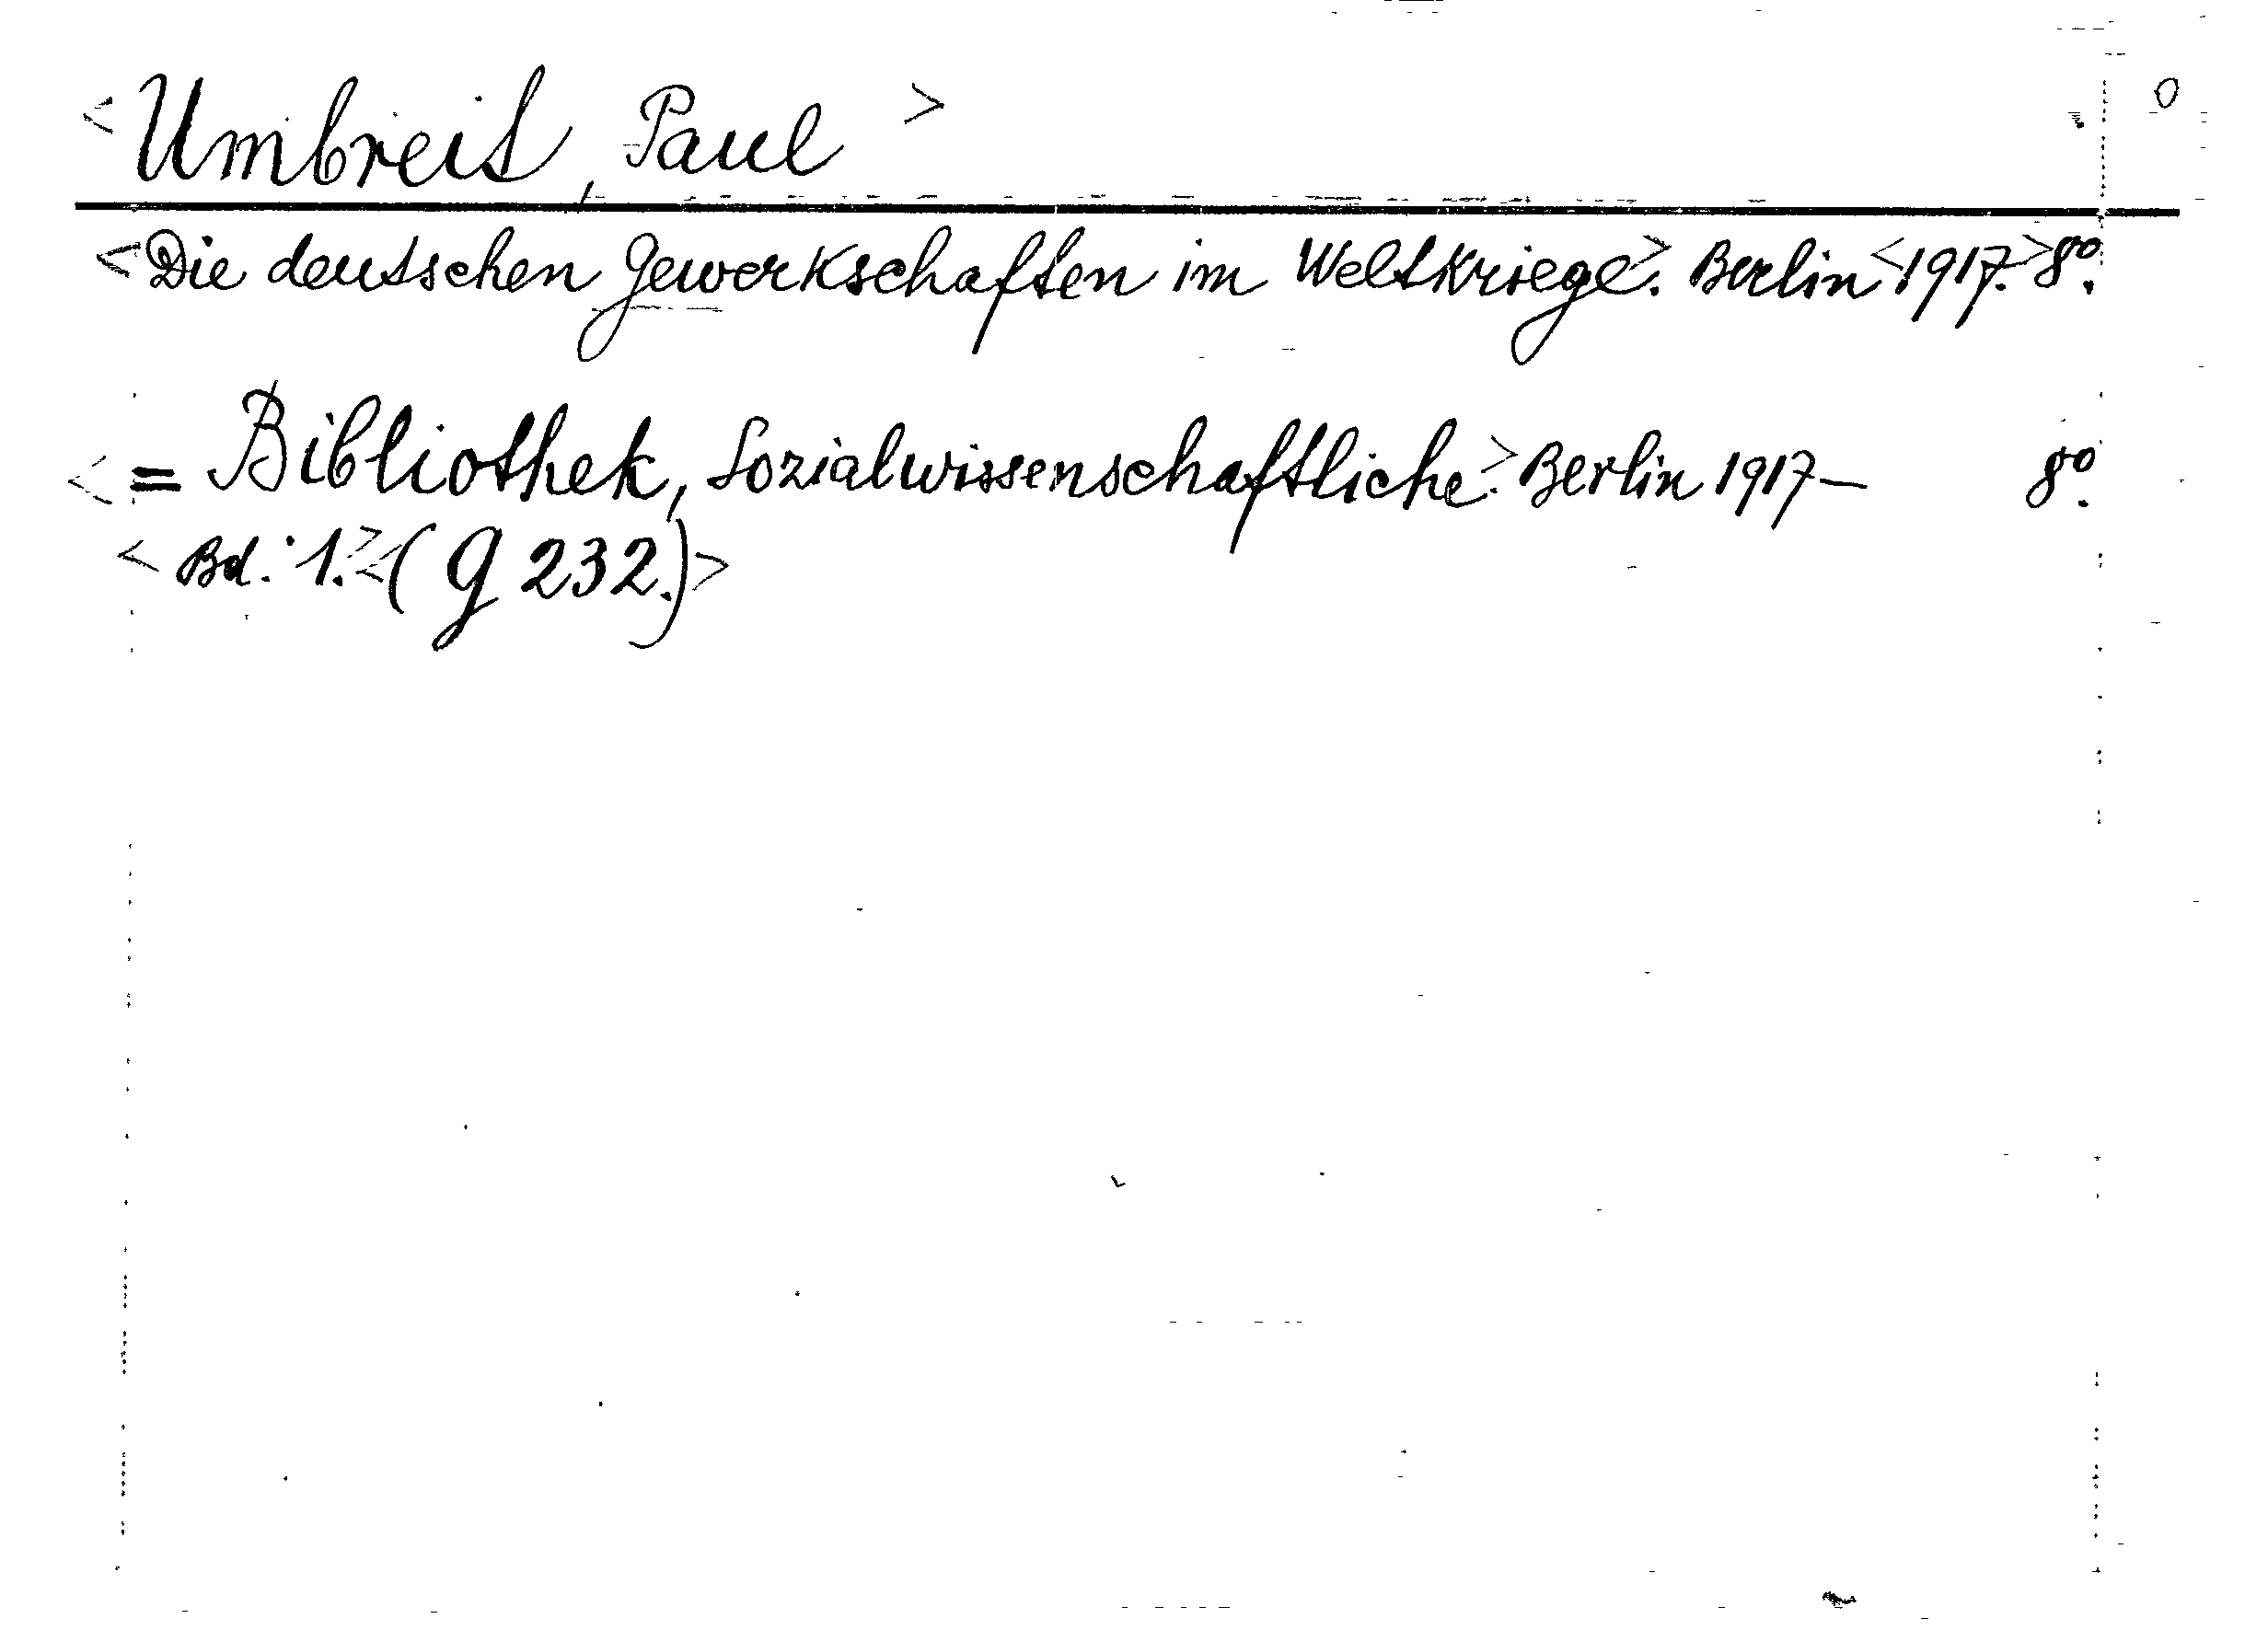 <Umbreit, Paul> 0
<Die deutschen Gewerkschaften im Weltkriege>. Berlin <1917.> 8°.
<= Bibliothek, Sozialwissenschaftliche>. Berlin 1917- 8°.
<Bd. 1.> <(G 232.)>